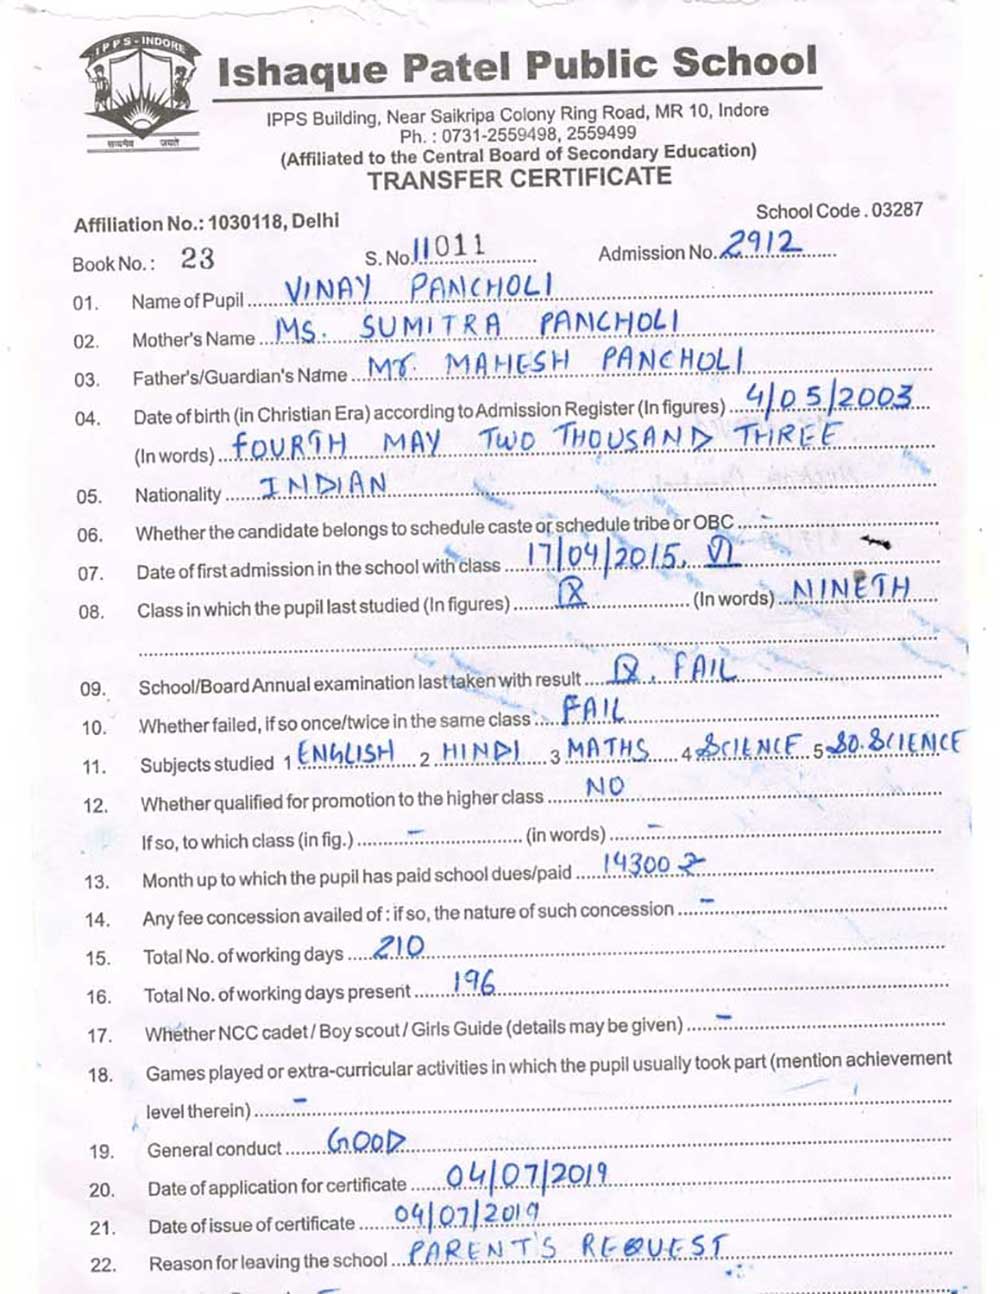 IPPS-INDORE
सत्यमेव जयते
Ishaque Patel Public School
IPPS Building, Near Saikripa Colony Ring Road, MR 10, Indore
Ph. : 0731-2559498, 2559499
(Affiliated to the Central Board of Secondary Education)
TRANSFER CERTIFICATE
Affiliation No.: 1030118, Delhi School Code . 03287
Book No.: 23 S. No. 11011 Admission No. 2912
01. Name of Pupil VINAY PANCHOLI
02. Mother's Name MS. SUMITRA PANCHOLI
03. Father's/Guardian's Name Mr. MAHESH PANCHOLI
04. Date of birth (in Christian Era) according to Admission Register (In figures) 4/05/2003
(In words) FOURTH MAY TWO THOUSAND THREE
05. Nationality INDIAN
06. Whether the candidate belongs to schedule caste or schedule tribe or OBC –
07. Date of first admission in the school with class 17/04/2015, VI
08. Class in which the pupil last studied (In figures) IX (In words) NINETH
09. School/Board Annual examination last taken with result IX, FAIL
10. Whether failed, if so once/twice in the same class FAIL
11. Subjects studied 1 ENGLISH 2 HINDI 3 MATHS 4 SCIENCE 5 SO. SCIENCE
12. Whether qualified for promotion to the higher class NO
If so, to which class (in fig.) – (in words) –
13. Month up to which the pupil has paid school dues/paid 14300
14. Any fee concession availed of : if so, the nature of such concession –
15. Total No. of working days 210
16. Total No. of working days present 196
17. Whether NCC cadet / Boy scout / Girls Guide (details may be given) –
18. Games played or extra-curricular activities in which the pupil usually took part (mention achievement
level therein) –
19. General conduct GOOD
20. Date of application for certificate 04/07/2019
21. Date of issue of certificate 04/07/2019
22. Reason for leaving the school PARENT'S REQUEST